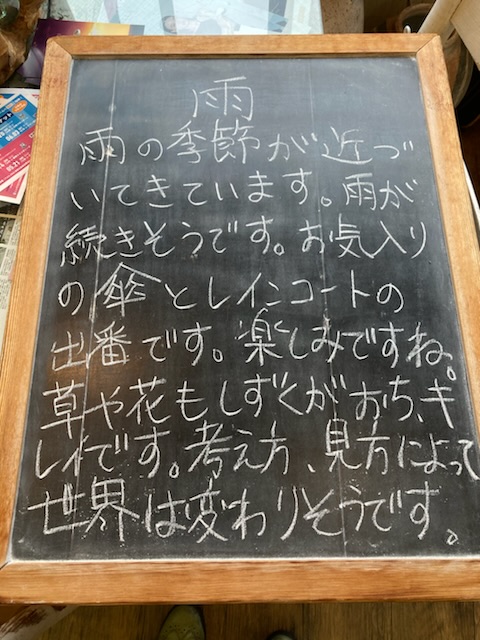 雨
雨の季節が近づ
いてきています。雨が
続きそうです。お気入り
の傘とレインコートの
出番です。楽しみですね。
草や花もしずくがおち、キ
レイです。考え方、見方によって
世界は変わりそうです。